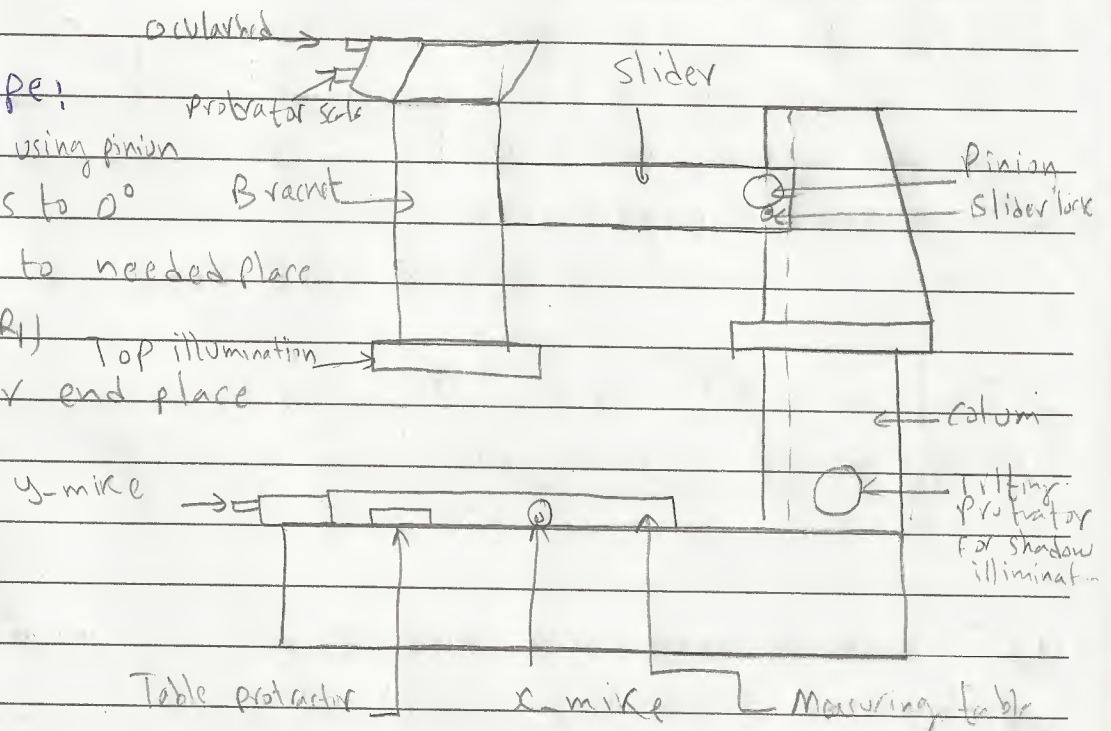 ocularhed
pe:
protrator scale
slider
using pinion
Pinion
s to 0°
Bracnet
slider lock
to needed place
R1)
Top illumination
r end place
colum
y-mike
Tilting
protrator
For shadow
illiminat..
Table protractir
x-mike
Measuring table